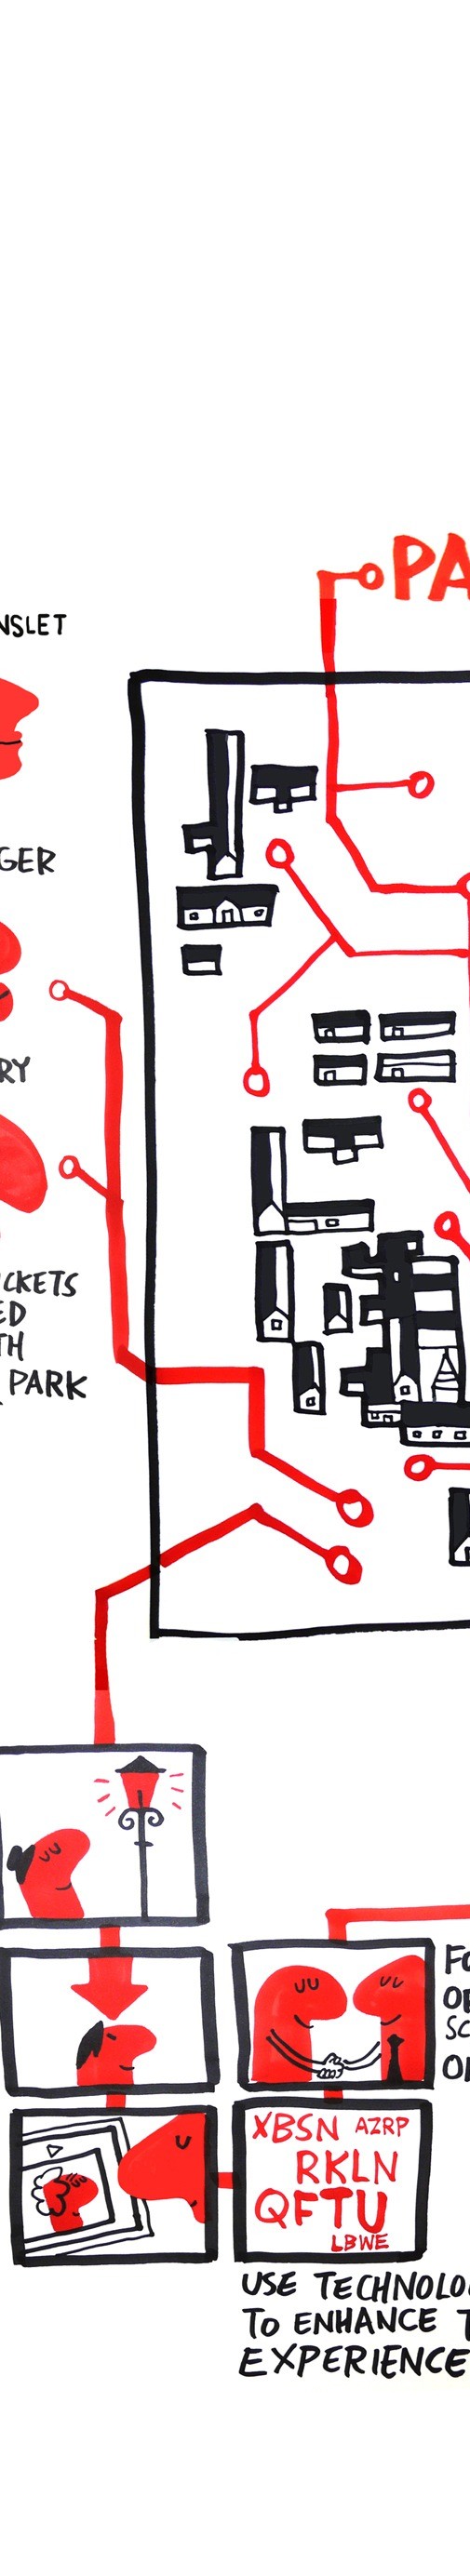 PA
NSLET
GER
RY
ICKETS
ED
TH
PARK
FO
OF
SC
XBSN AZRP
RKLN
QFTU
LBWE
USE TECHNOLO
TO ENHANCE T
EXPERIENCE